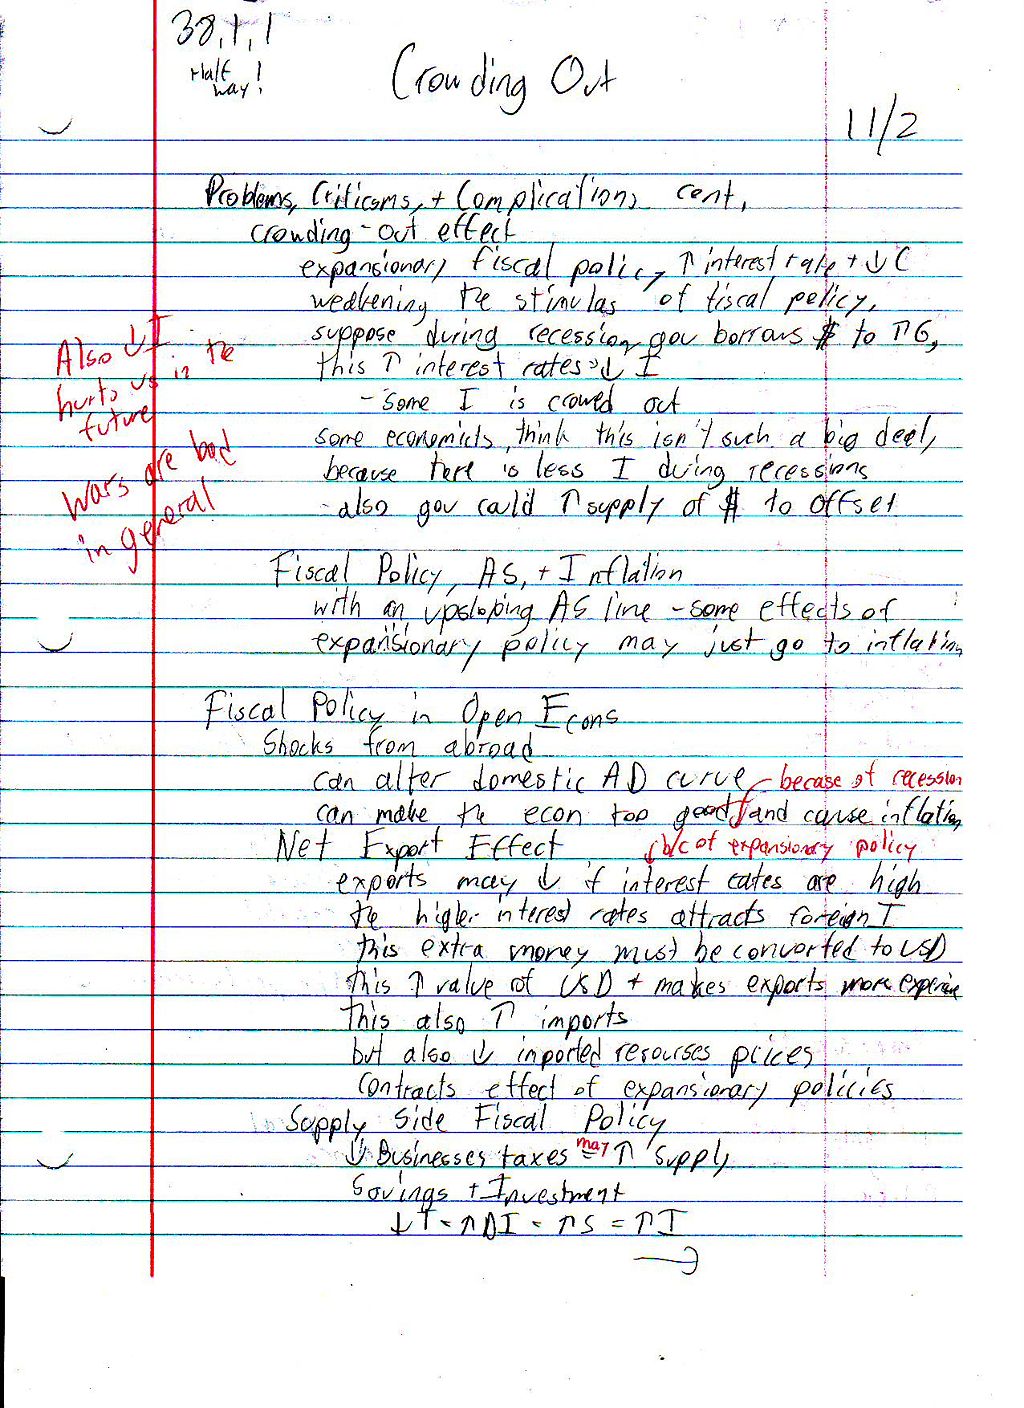 38,1,1
Half way!
Crowding Out
11/2
Problems, Criticisms, + Complications cont,
crowding-out effect
expansionary fiscal policy ↑ interest rate + ↓ C
weakening the stimulas of fiscal policy,
suppose during recession gov borrows $ to ↑G,
this ↑ interest rates → ↓ I
- some I is crowed out
some economists think this isn't such a big deal,
because there is less I during recessions
- also gov could ↑ supply of $ to offset
Also ↓ I
hurts us in the
future
Wars are bad
in general
Fiscal Policy, AS, + Inflation
with an upsloping AS line - some effects of
expansionary policy may just go to inflation
Fiscal Policy in Open Econs
Shocks from abroad
can alter domestic AD curve - becase of recession
can make the econ too good and cause inflation
Net Export Effect
b/c of expansionary policy
exports may ↓ if interest rates are high
the higher interest rates attracts foreign I
this extra money must be converted to USD
this ↑ value of USD + makes exports more
this also ↑ imports
but also ↓ inported resourses prices
contracts effect of expansionary policies
Supply Side Fiscal Policy
↓ Businesses taxes may ↑ supply
Savings + Investment
↓T = ↑DI = ↑S = ↑I
→